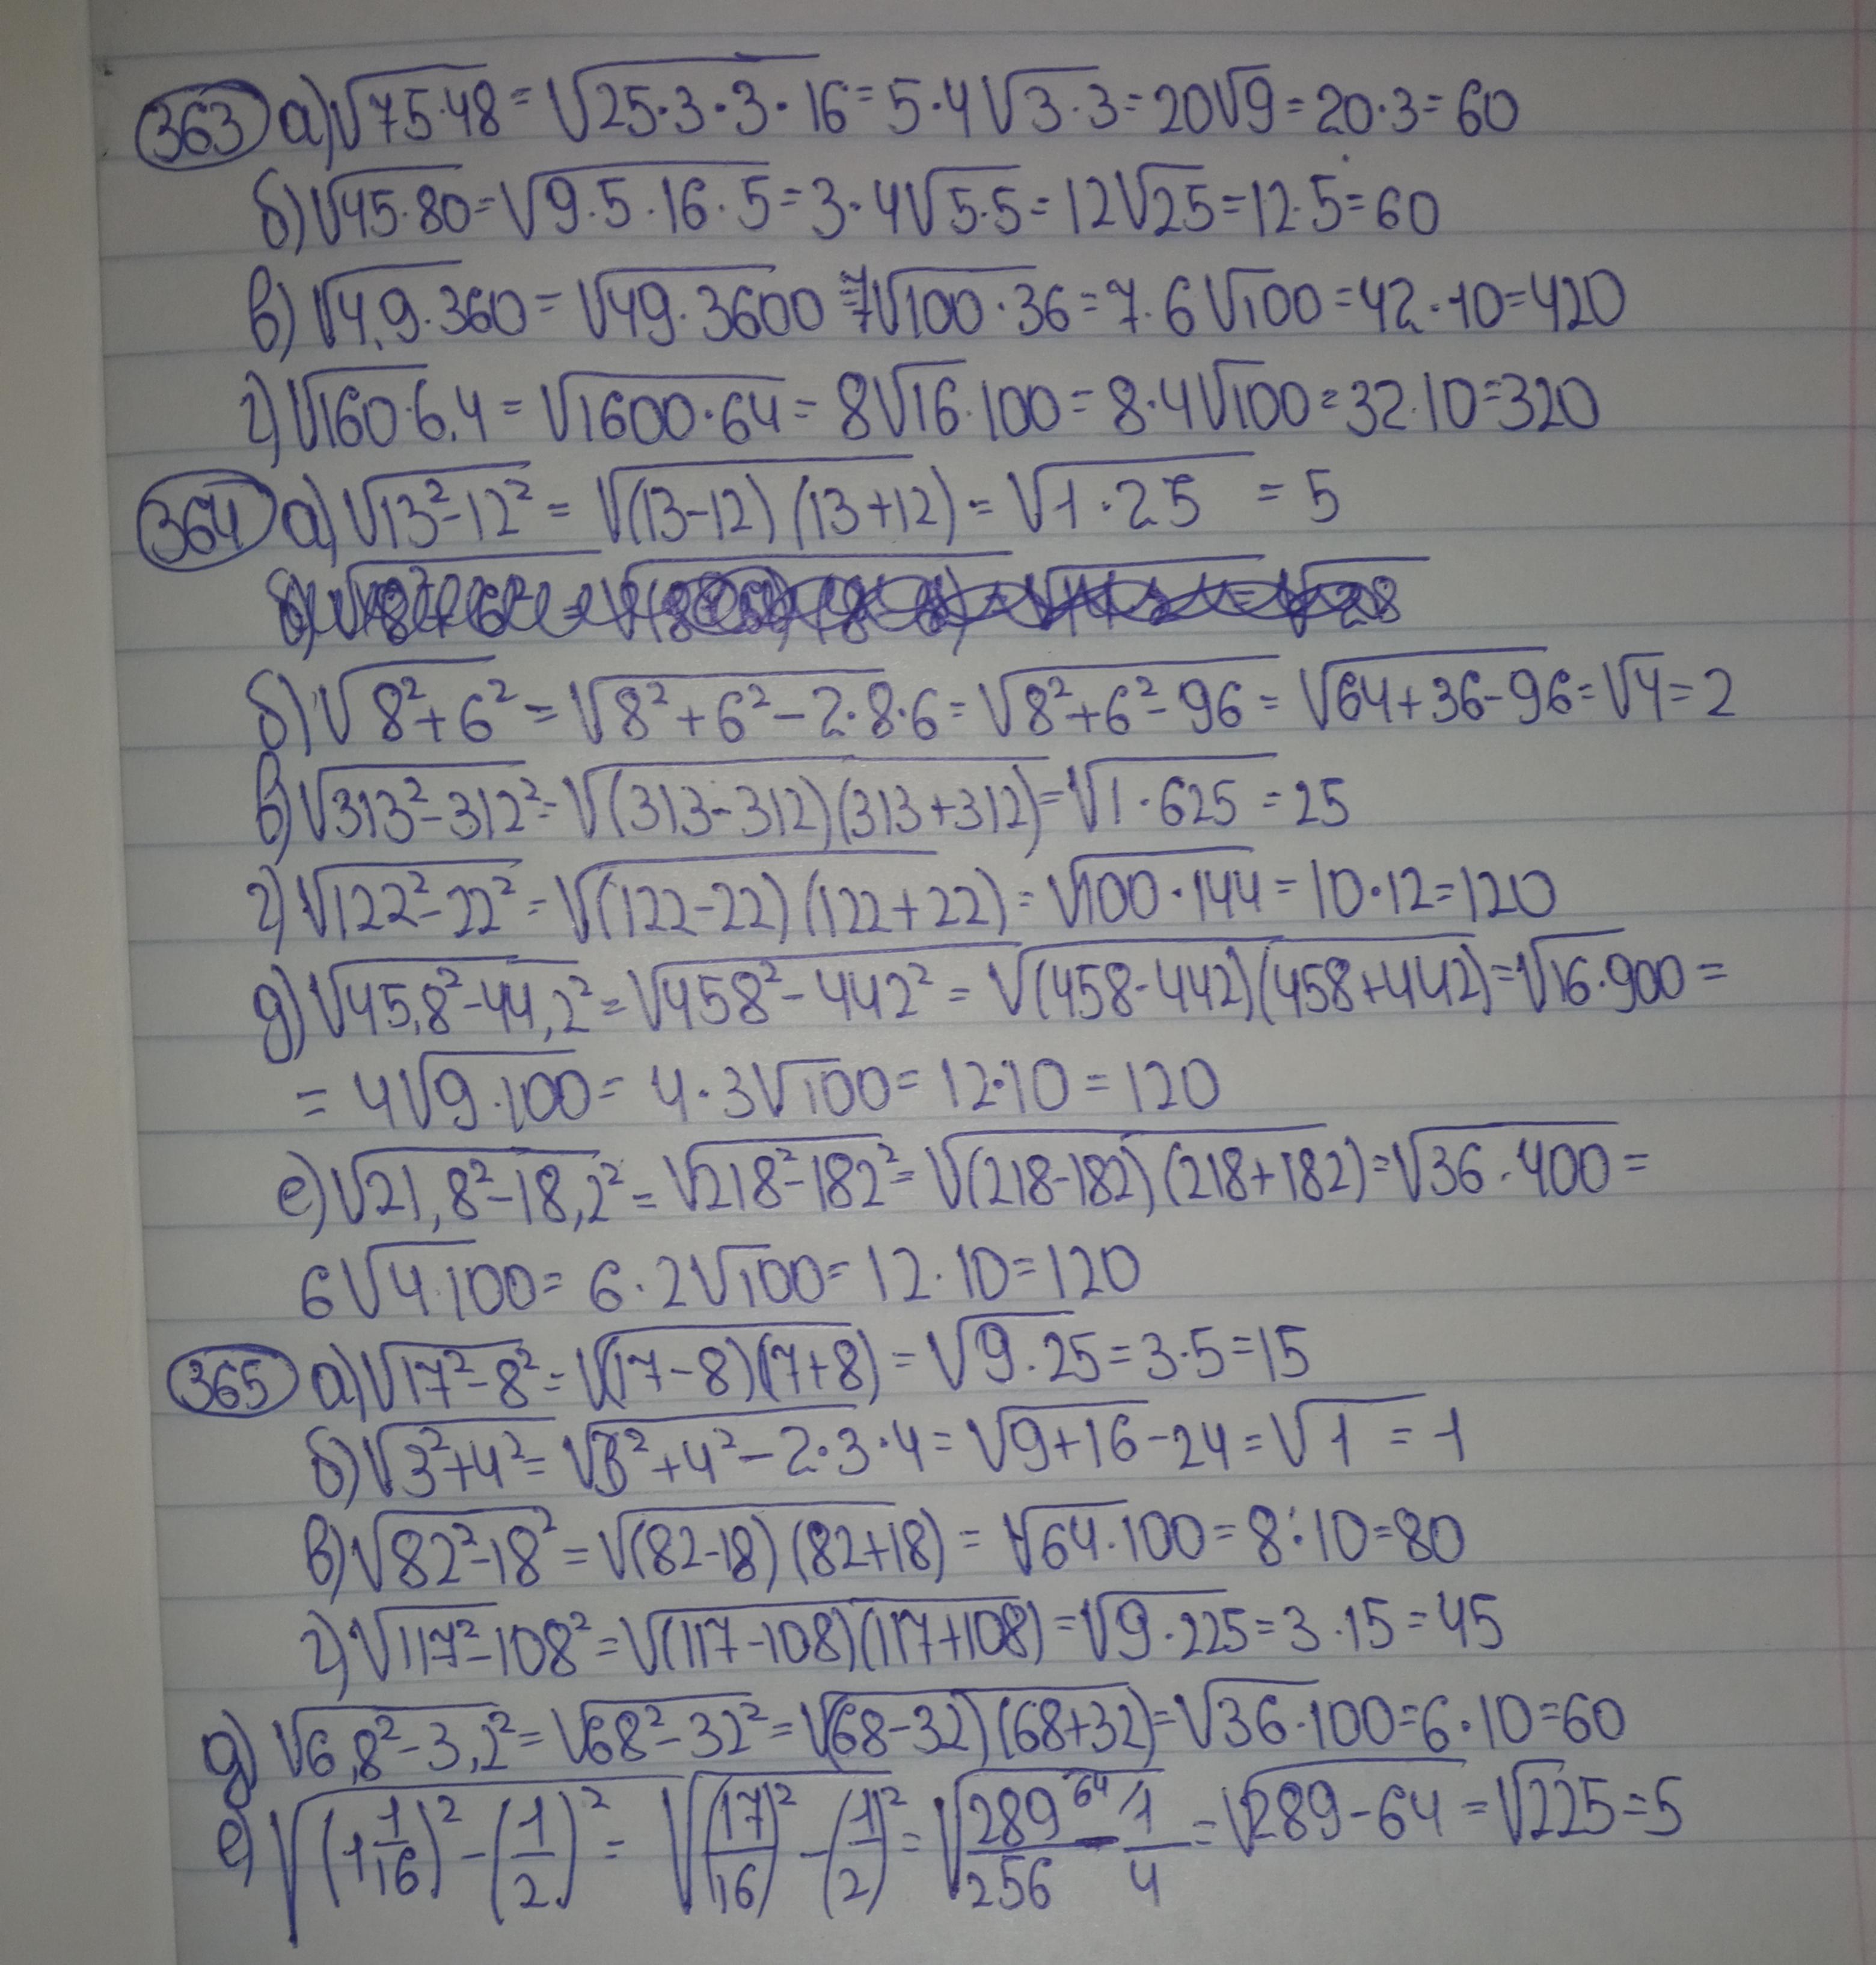 363 а) √75·48 = √25·3·3·16 = 5·4√3·3 = 20√9 = 20·3 = 60
б) √45·80 = √9·5·16·5 = 3·4√5·5 = 12√25 = 12·5 = 60
в) √4,9·360 = √49·3600 = 7√100·36 = 7·6√100 = 42·10 = 420
г) √160·6,4 = √1600·64 = 8√16·100 = 8·4√100 = 32·10 = 320
364 а) √13²-12² = √(13-12)(13+12) = √1·25 = 5
б) √8²+6² = √8²+6²-2·8·6 = √8²+6²-96 = √64+36-96 = √4 = 2
в) √313²-312² = √(313-312)(313+312) = √1·625 = 25
г) √122²-22² = √(122-22)(122+22) = √100·144 = 10·12 = 120
д) √45,8²-44,2² = √458²-442² = √(458-442)(458+442) = √16·900 =
= 4√9·100 = 4·3√100 = 12·10 = 120
е) √21,8²-18,2² = √218²-182² = √(218-182)(218+182) = √36·400 =
6√4·100 = 6·2√100 = 12·10 = 120
365 а) √17²-8² = √(17-8)(17+8) = √9·25 = 3·5 = 15
б) √3²+4² = √3²+4²-2·3·4 = √9+16-24 = √1 = 1
в) √82²-18² = √(82-18)(82+18) = √64·100 = 8·10 = 80
г) √117²-108² = √(117-108)(117+108) = √9·225 = 3·15 = 45
д) √6,8²-3,2² = √68²-32² = √(68-32)(68+32) = √36·100 = 6·10 = 60
е) √(1 1/16)²-(1/2)² = √(17/16)²-(1/2)² = √289/256 - 64/1/4 = √289-64 = √225 = 5